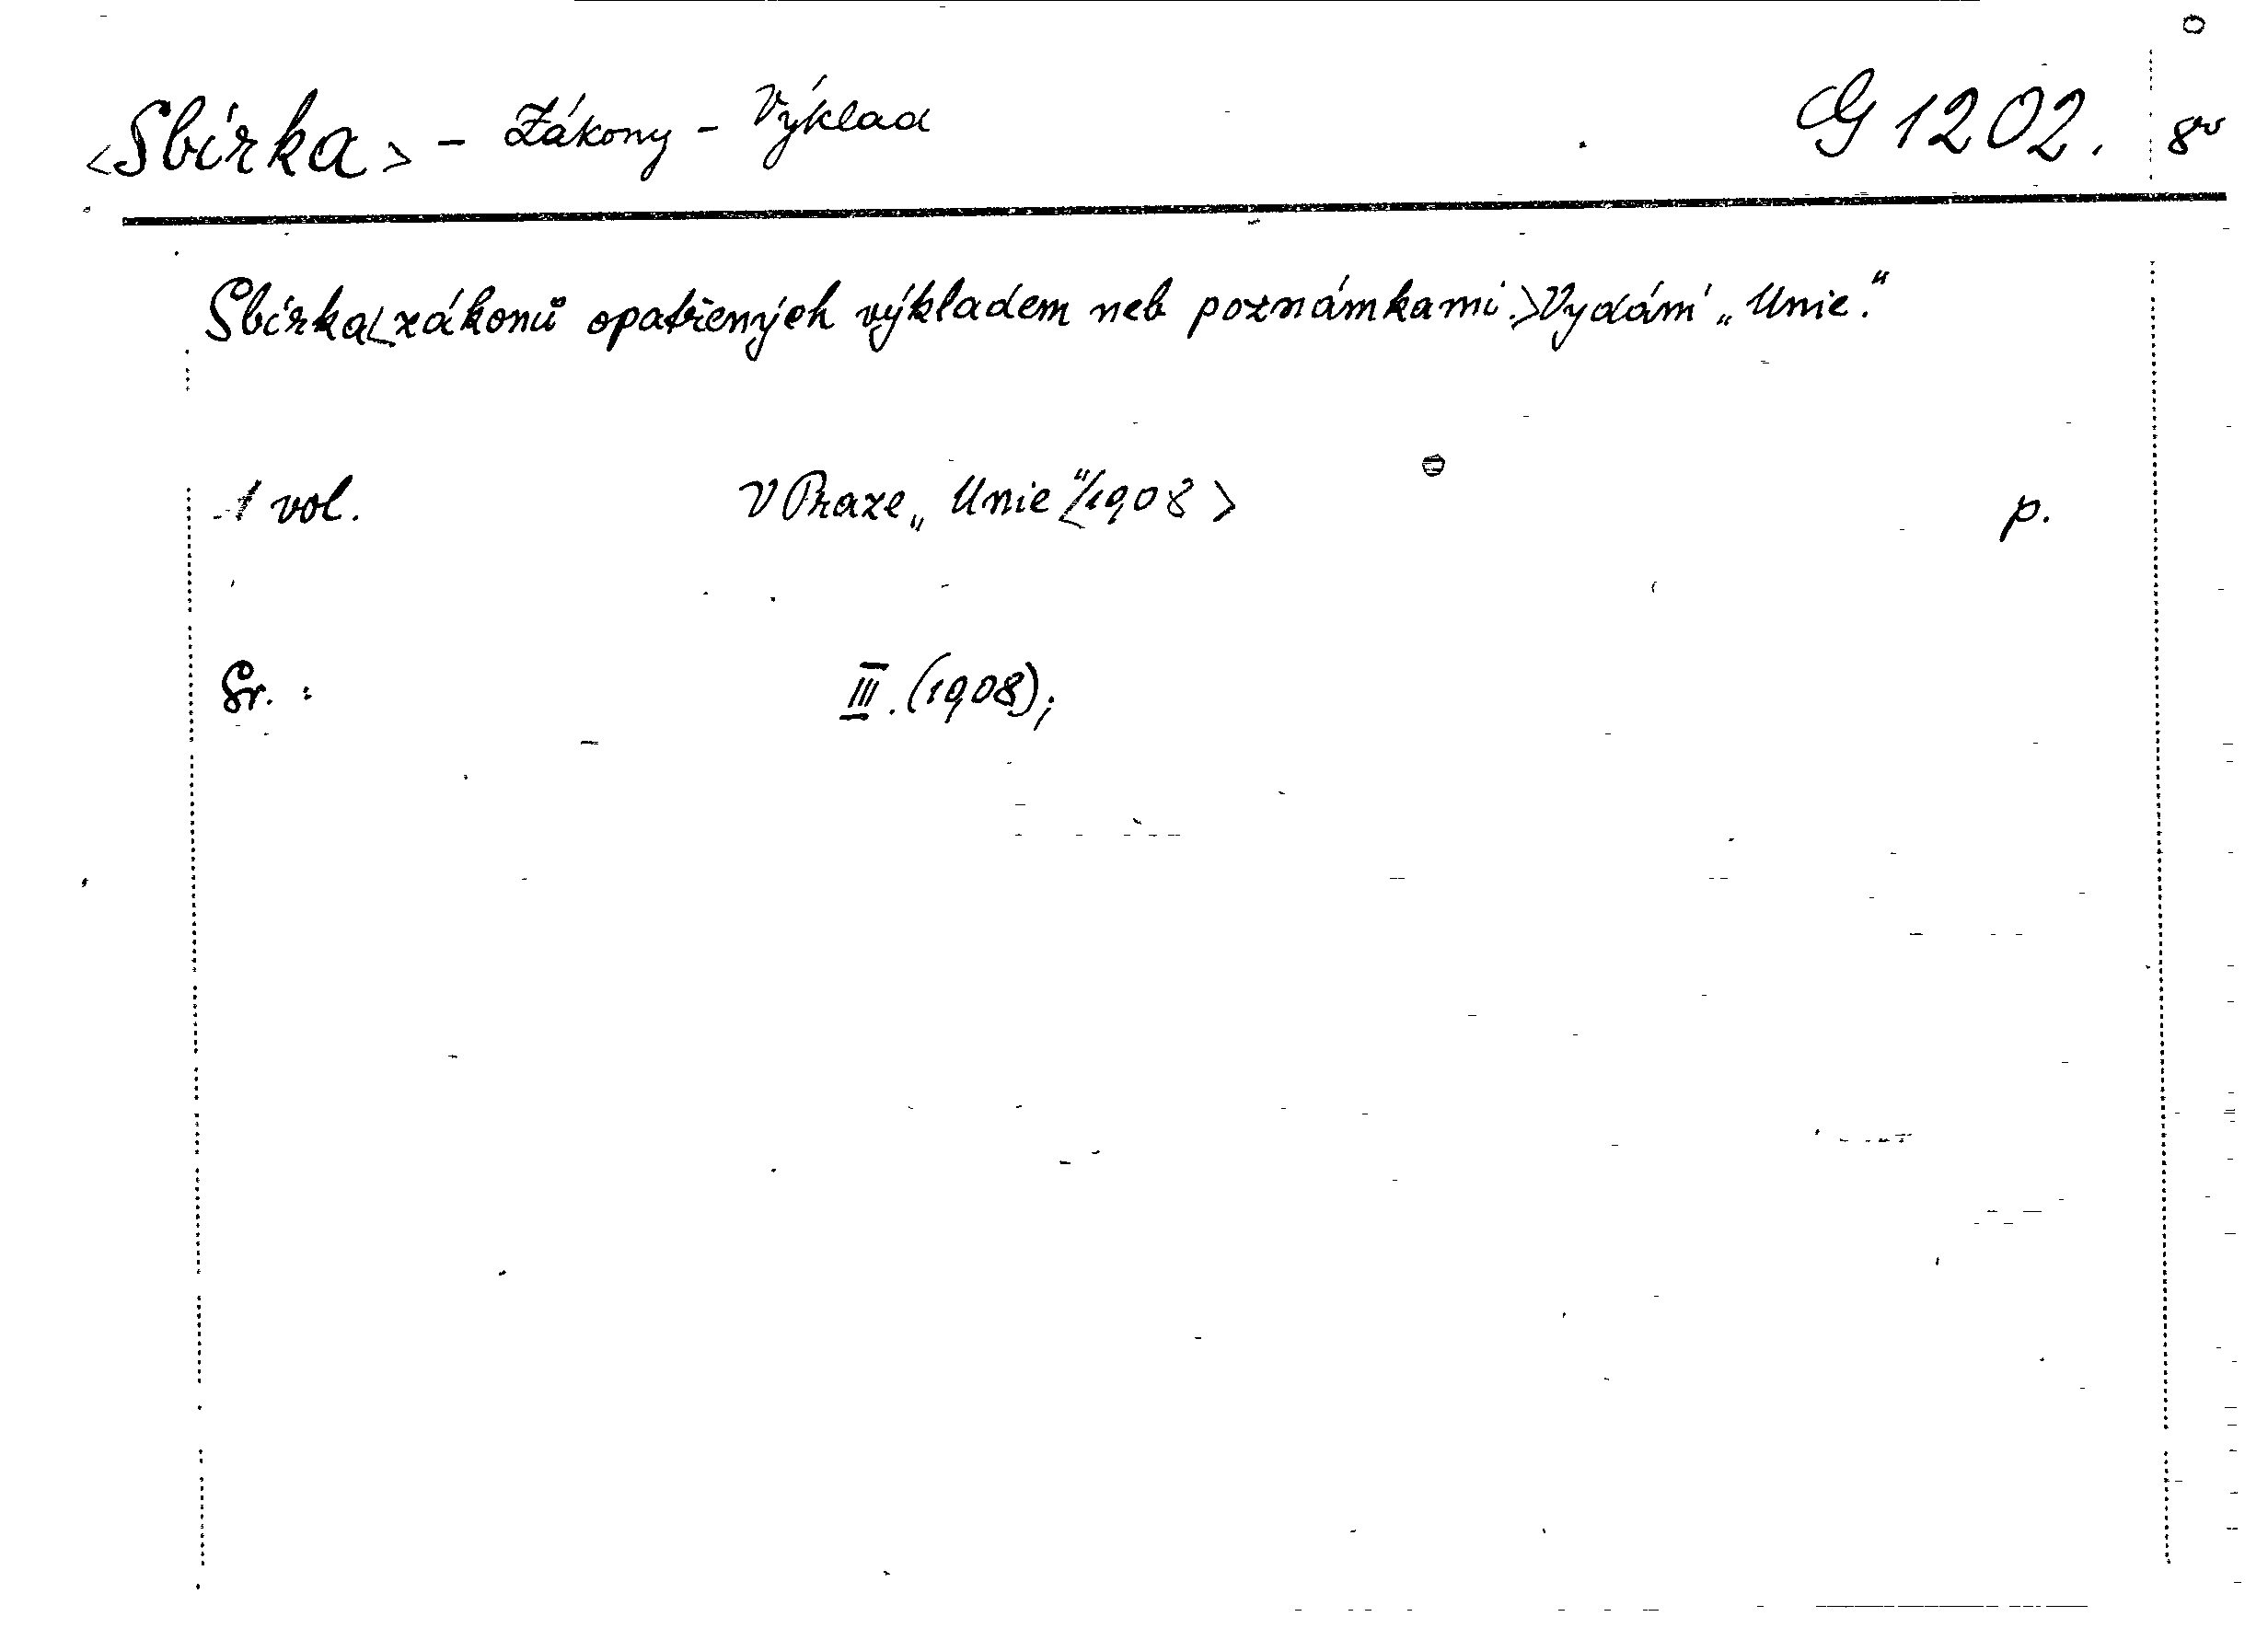 <Sbírka> - Zákony - Výklad G 1202. 8°
Sbírka <zákonů opatřených výkladem neb poznámkami.> Vydání „Unie."
1 vol. V Praze „Unie" <1908> p.
Sv. : III. (1908);